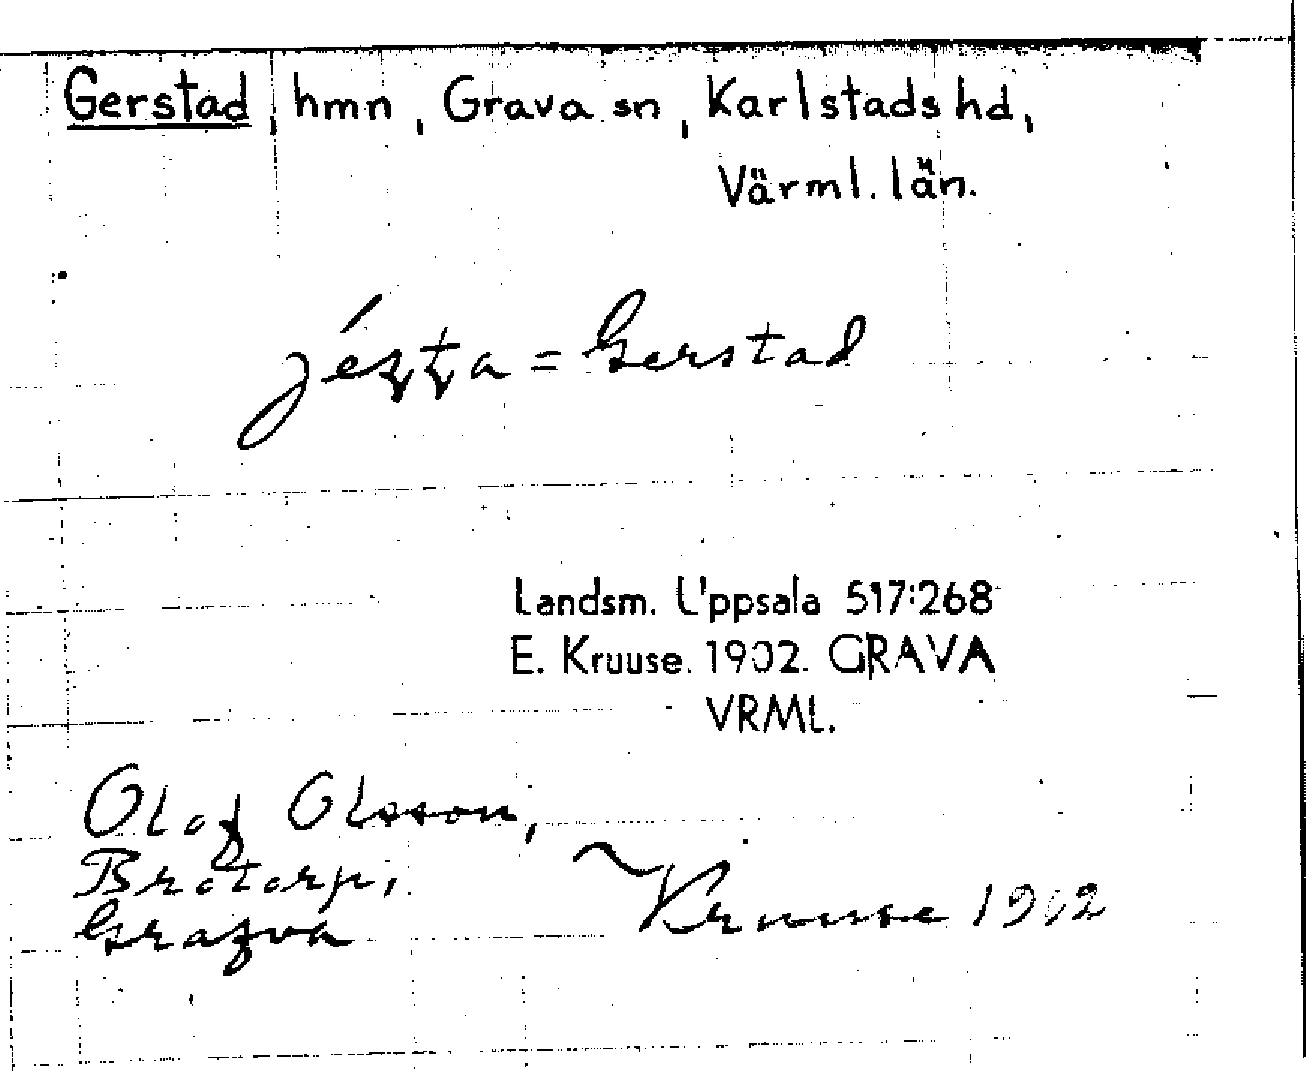 Gerstad, hmn, Grava sn, Karlstads hd,
Värml. län.
= Gerstad
Landsm. Uppsala 517:268
E. Kruuse. 1902. GRAVA
VRML.
Olof Olsson,
Brotorp,
Grafva
Kruuse 1902